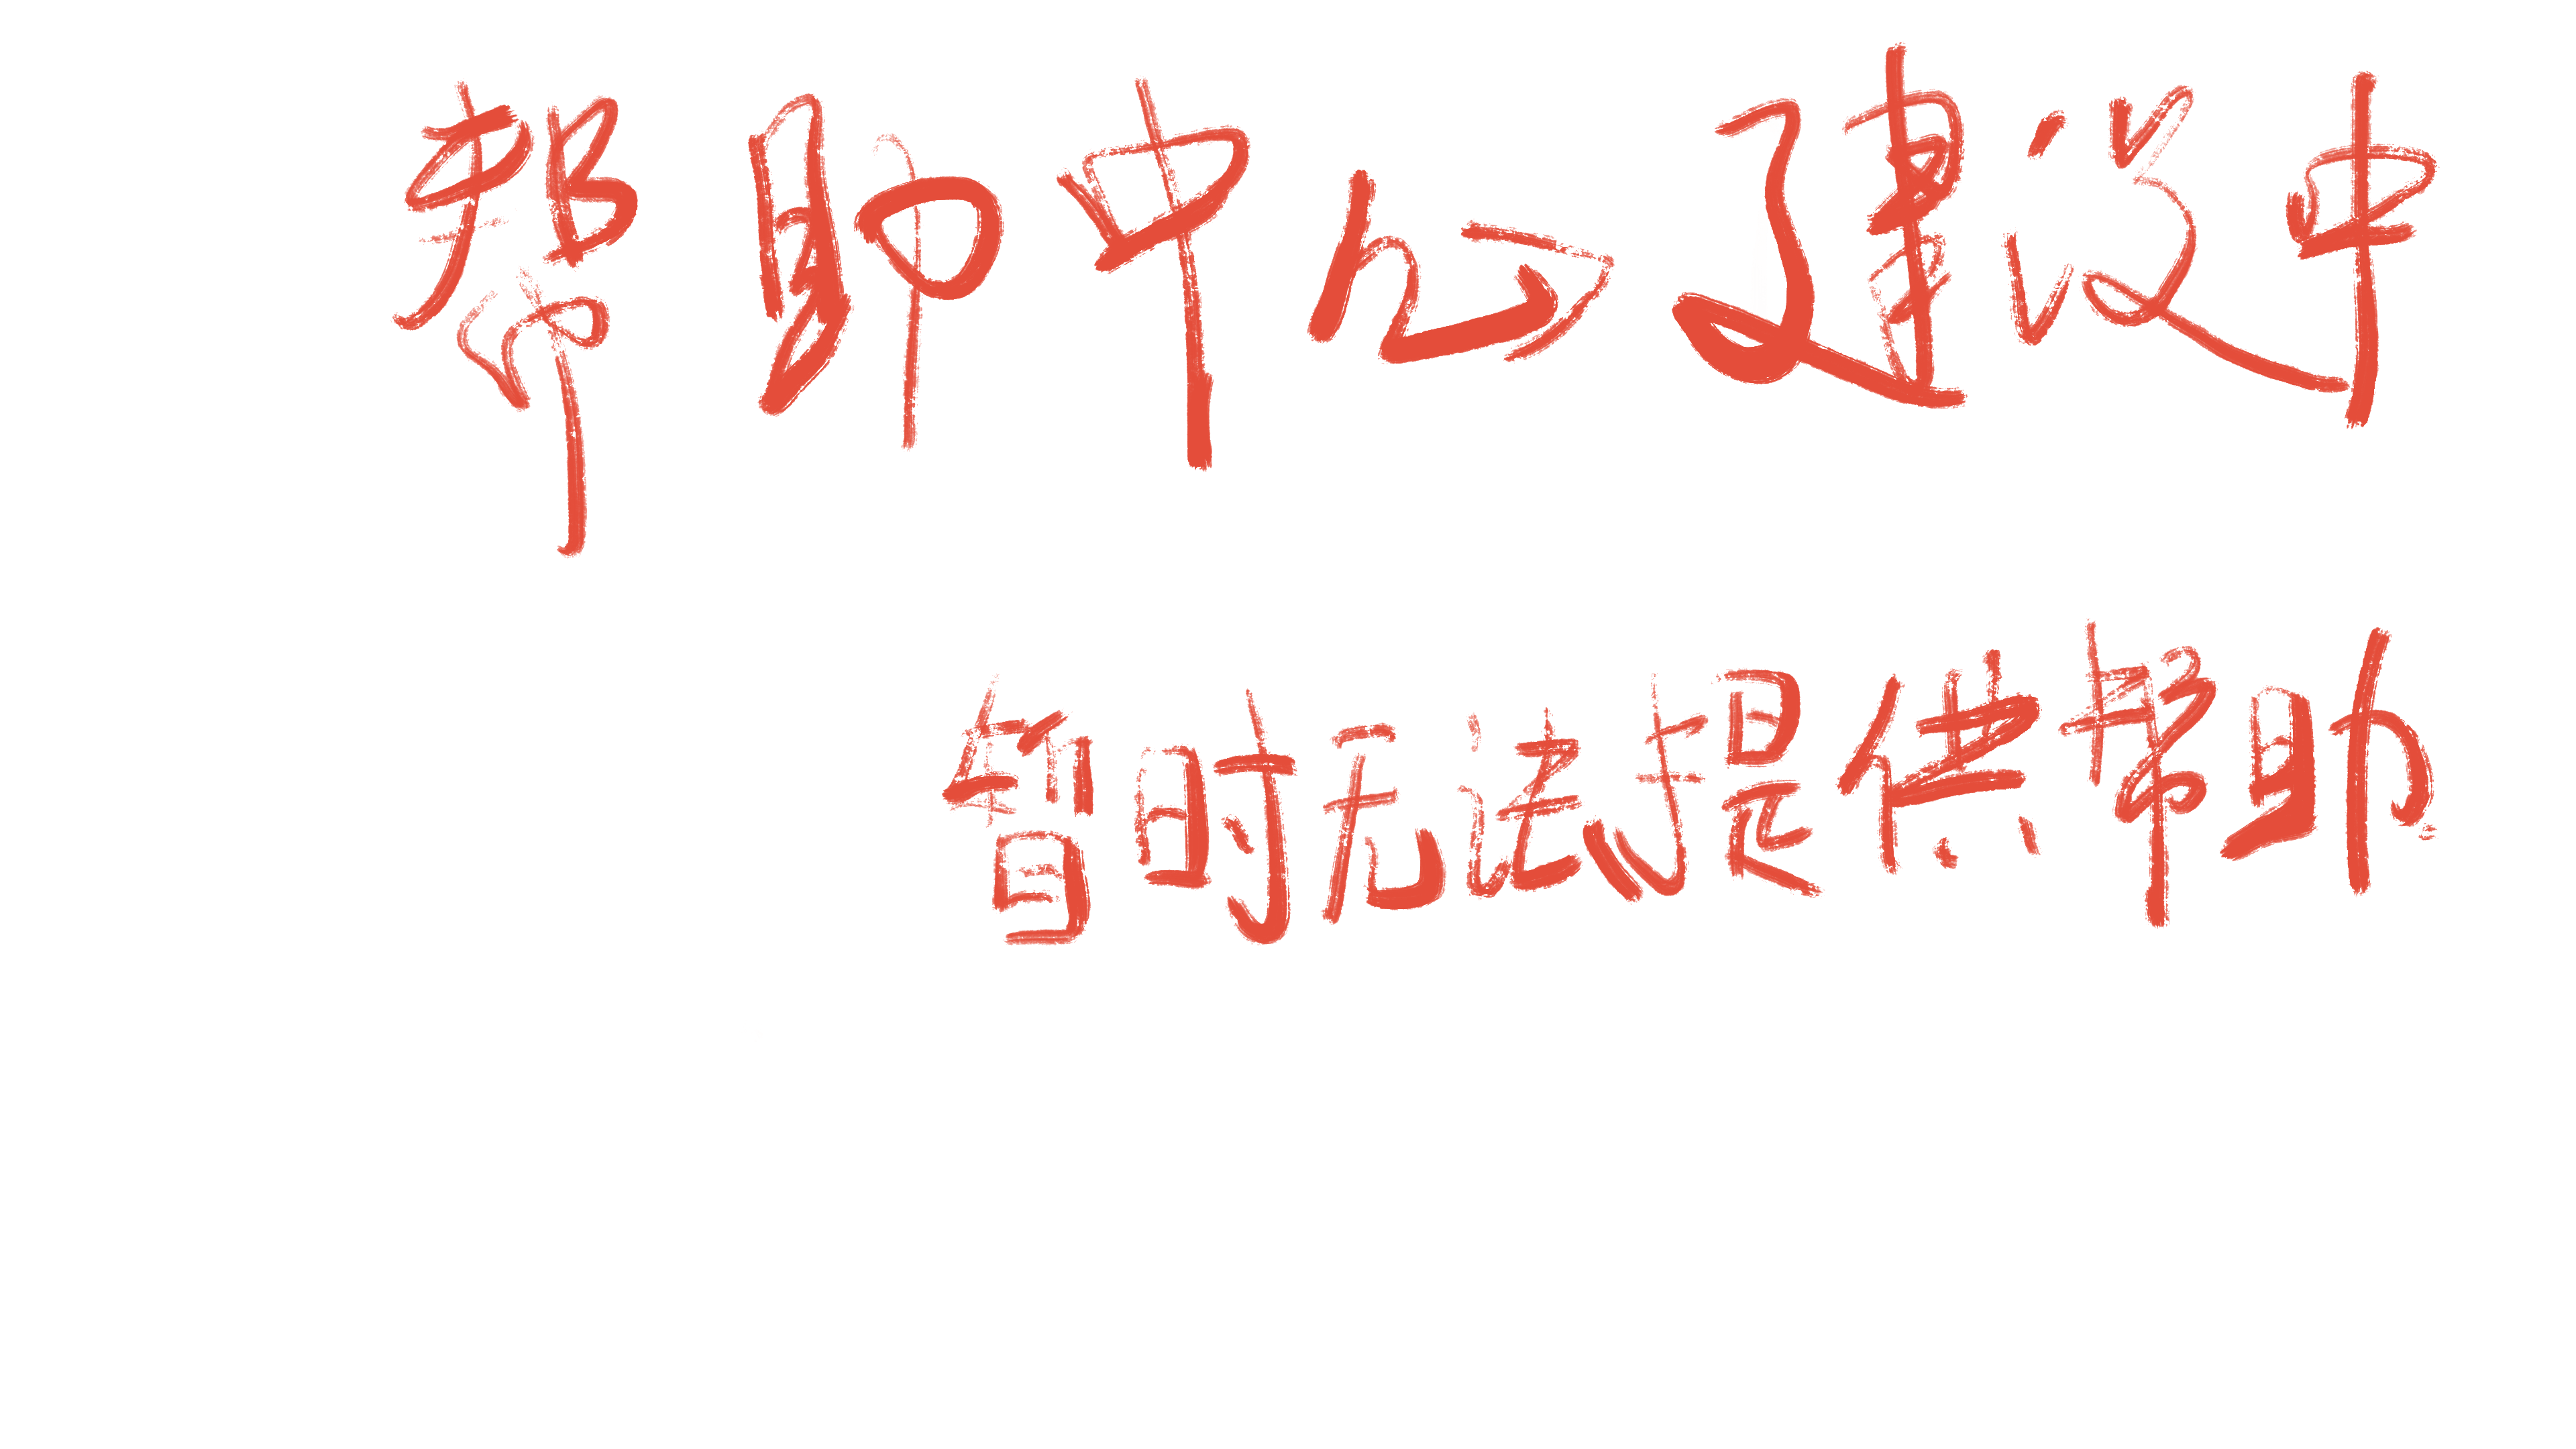 帮助中心建设中
暂时无法提供帮助